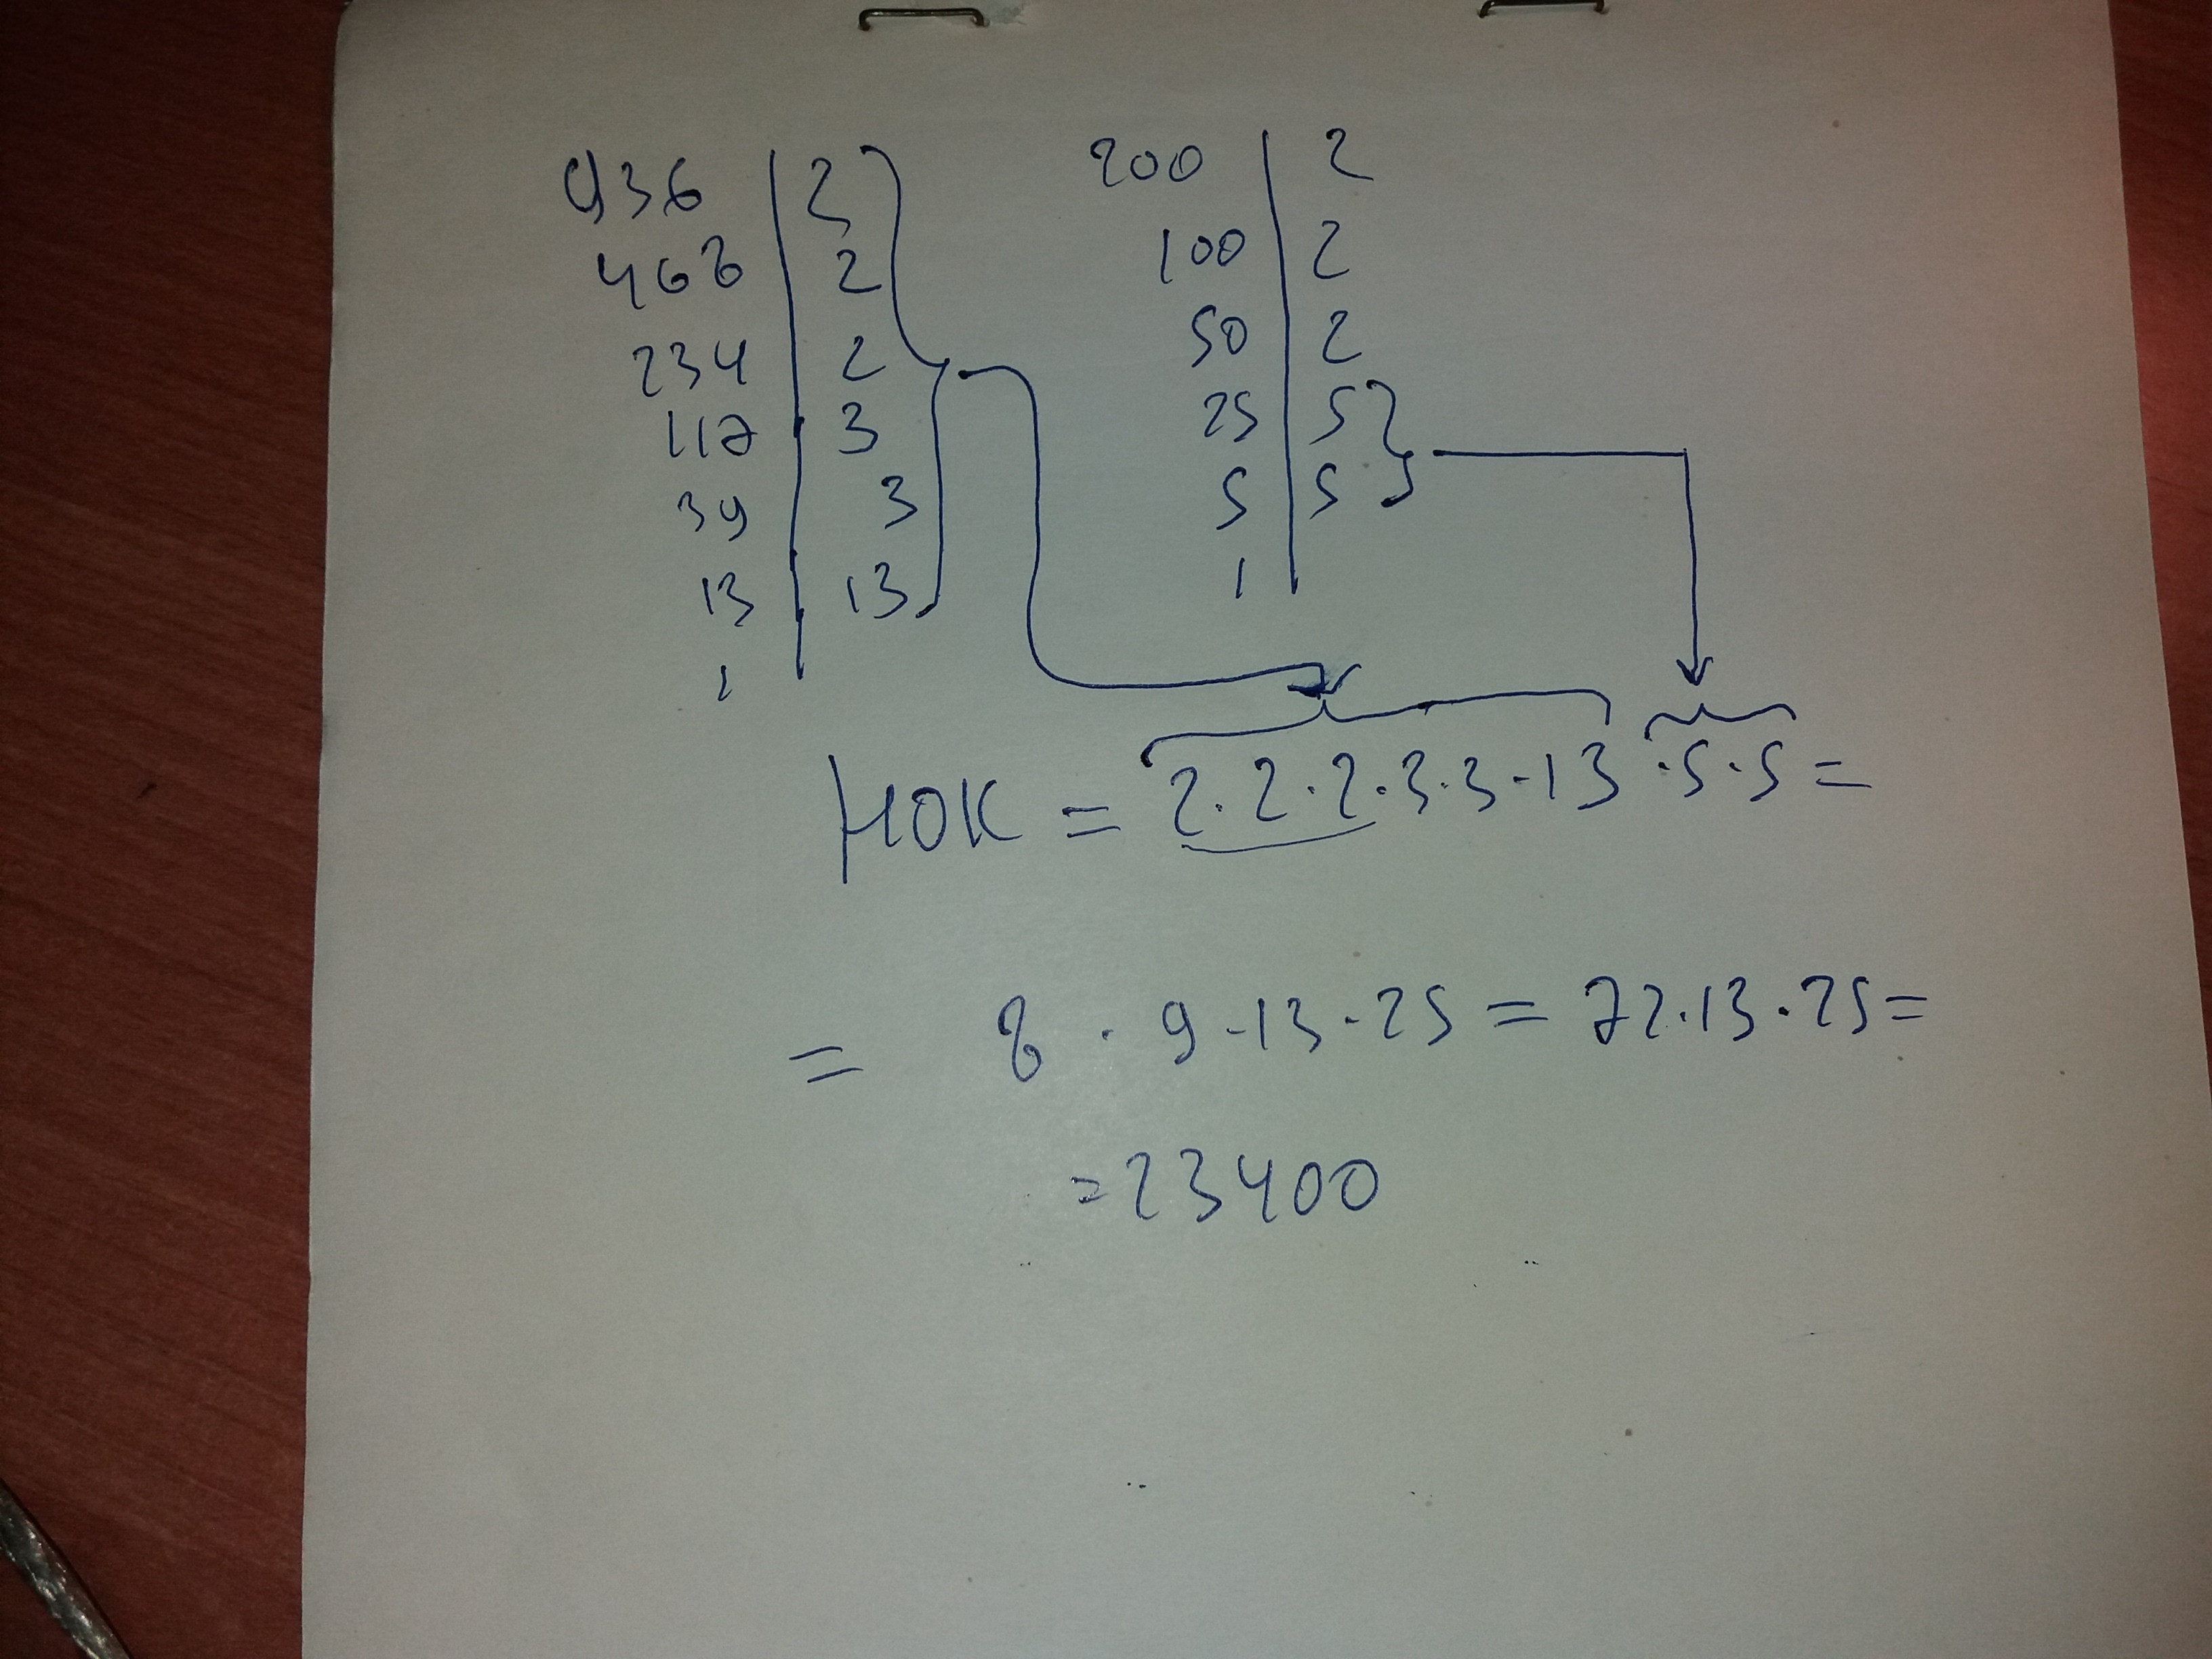 936 | 2
468 | 2
234 | 2
117 | 3
39 | 3
13 | 13
1
200 | 2
100 | 2
50 | 2
25 | 5
5 | 5
1
НОК = 2·2·2·3·3·13·5·5=
= 8·9·13·25=72·13·25=
=23400